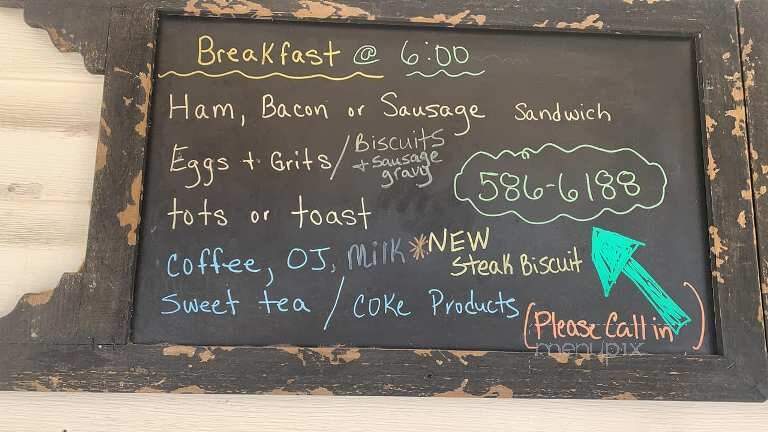 Breakfast @ 6:00
Ham, Bacon or Sausage Sandwich
Eggs + Grits / Biscuits
+ sausage
gravy
586-6188
tots or toast
Coffee, OJ, Milk *NEW
Steak Biscuit
Sweet tea / Coke Products
(Please Call in)
menupix